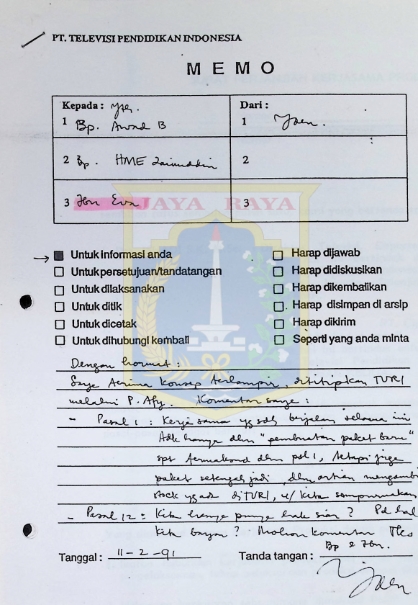 PT. TELEVISI PENDIDIKAN INDONESIA
MEMO
Kepada : Yth. Dari :
1 Bp. Awad B 1
2 Bp. HME Zainuddin 2
3 Ibu Eva 3
JAYA RAYA
Untuk informasi anda Harap dijawab
Untuk persetujuan/tandatangan Harap didiskusikan
Untuk dilaksanakan Harap dikembalikan
Untuk ditik Harap disimpan di arsip
Untuk dicetak Harap dikirim
Untuk dihubungi kembali Seperti yang anda minta
Dengan hormat :
Saya terima konsep terlampir, dititipkan TVRI
melalui P. Komentar saya :
- Pasal 1 : Kerja sama yg sdh berjalan selama ini
tdk hanya dlm "pembuatan paket baru"
spt termaksud dlm psl 1, tetapi juga
paket setengah jadi, dlm artian mengambil
stock yg ada di TVRI, u/ kita sempurnakan
- Pasal 12 : Kita hanya punya hak siar ? Pd hal
kita bayar ? Mohon komentar
Bp 2 Ibu.
Tanggal : 11-2-91 Tanda tangan :